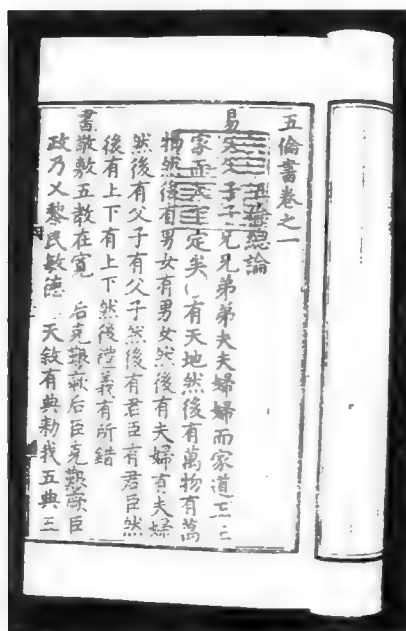 五倫書卷之一
五倫總論
易父父子子兄兄弟弟夫夫婦婦而家道正正
家而天下定矣 有天地然後有萬物有萬
物然後有男女有男女然後有夫婦有夫婦
然後有父子有父子然後有君臣有君臣然
後有上下有上下然後禮義有所錯
書敬敷五教在寬 后克艱厥后臣克艱厥臣
政乃乂黎民敏德 天敘有典勑我五典五